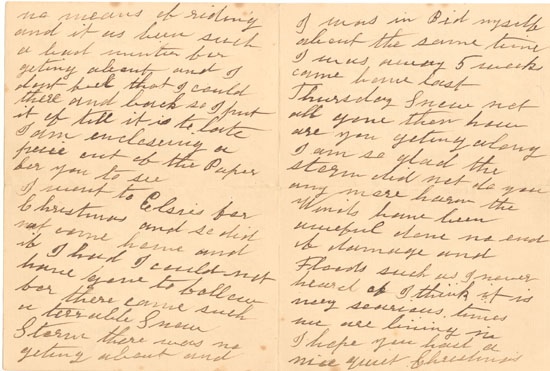 no means of riding
and it as been such
a bad winter for
geting about and I
dont feel that I could
there and back so I put
it of till it is to late
I am enclosing a
peice out of the Paper
for you to see
I went to Elsies for
Christmas and so did
not come home and
if I had I could not
have gone to
for there came such
a terrable Snow
Storm there was no
geting about and
I was in Bed myself
about the same time
I was away 5 week
came home last
Thursday Snow not
all gone then how
are you geting along
I am so glad the
storm did not do you
any more harm the
Winds have been
aweful done no end
of damage and
Floods such as I never
heard of I think it is
very seareous times
we are living in
I hope you had a
nice quiet Christmas